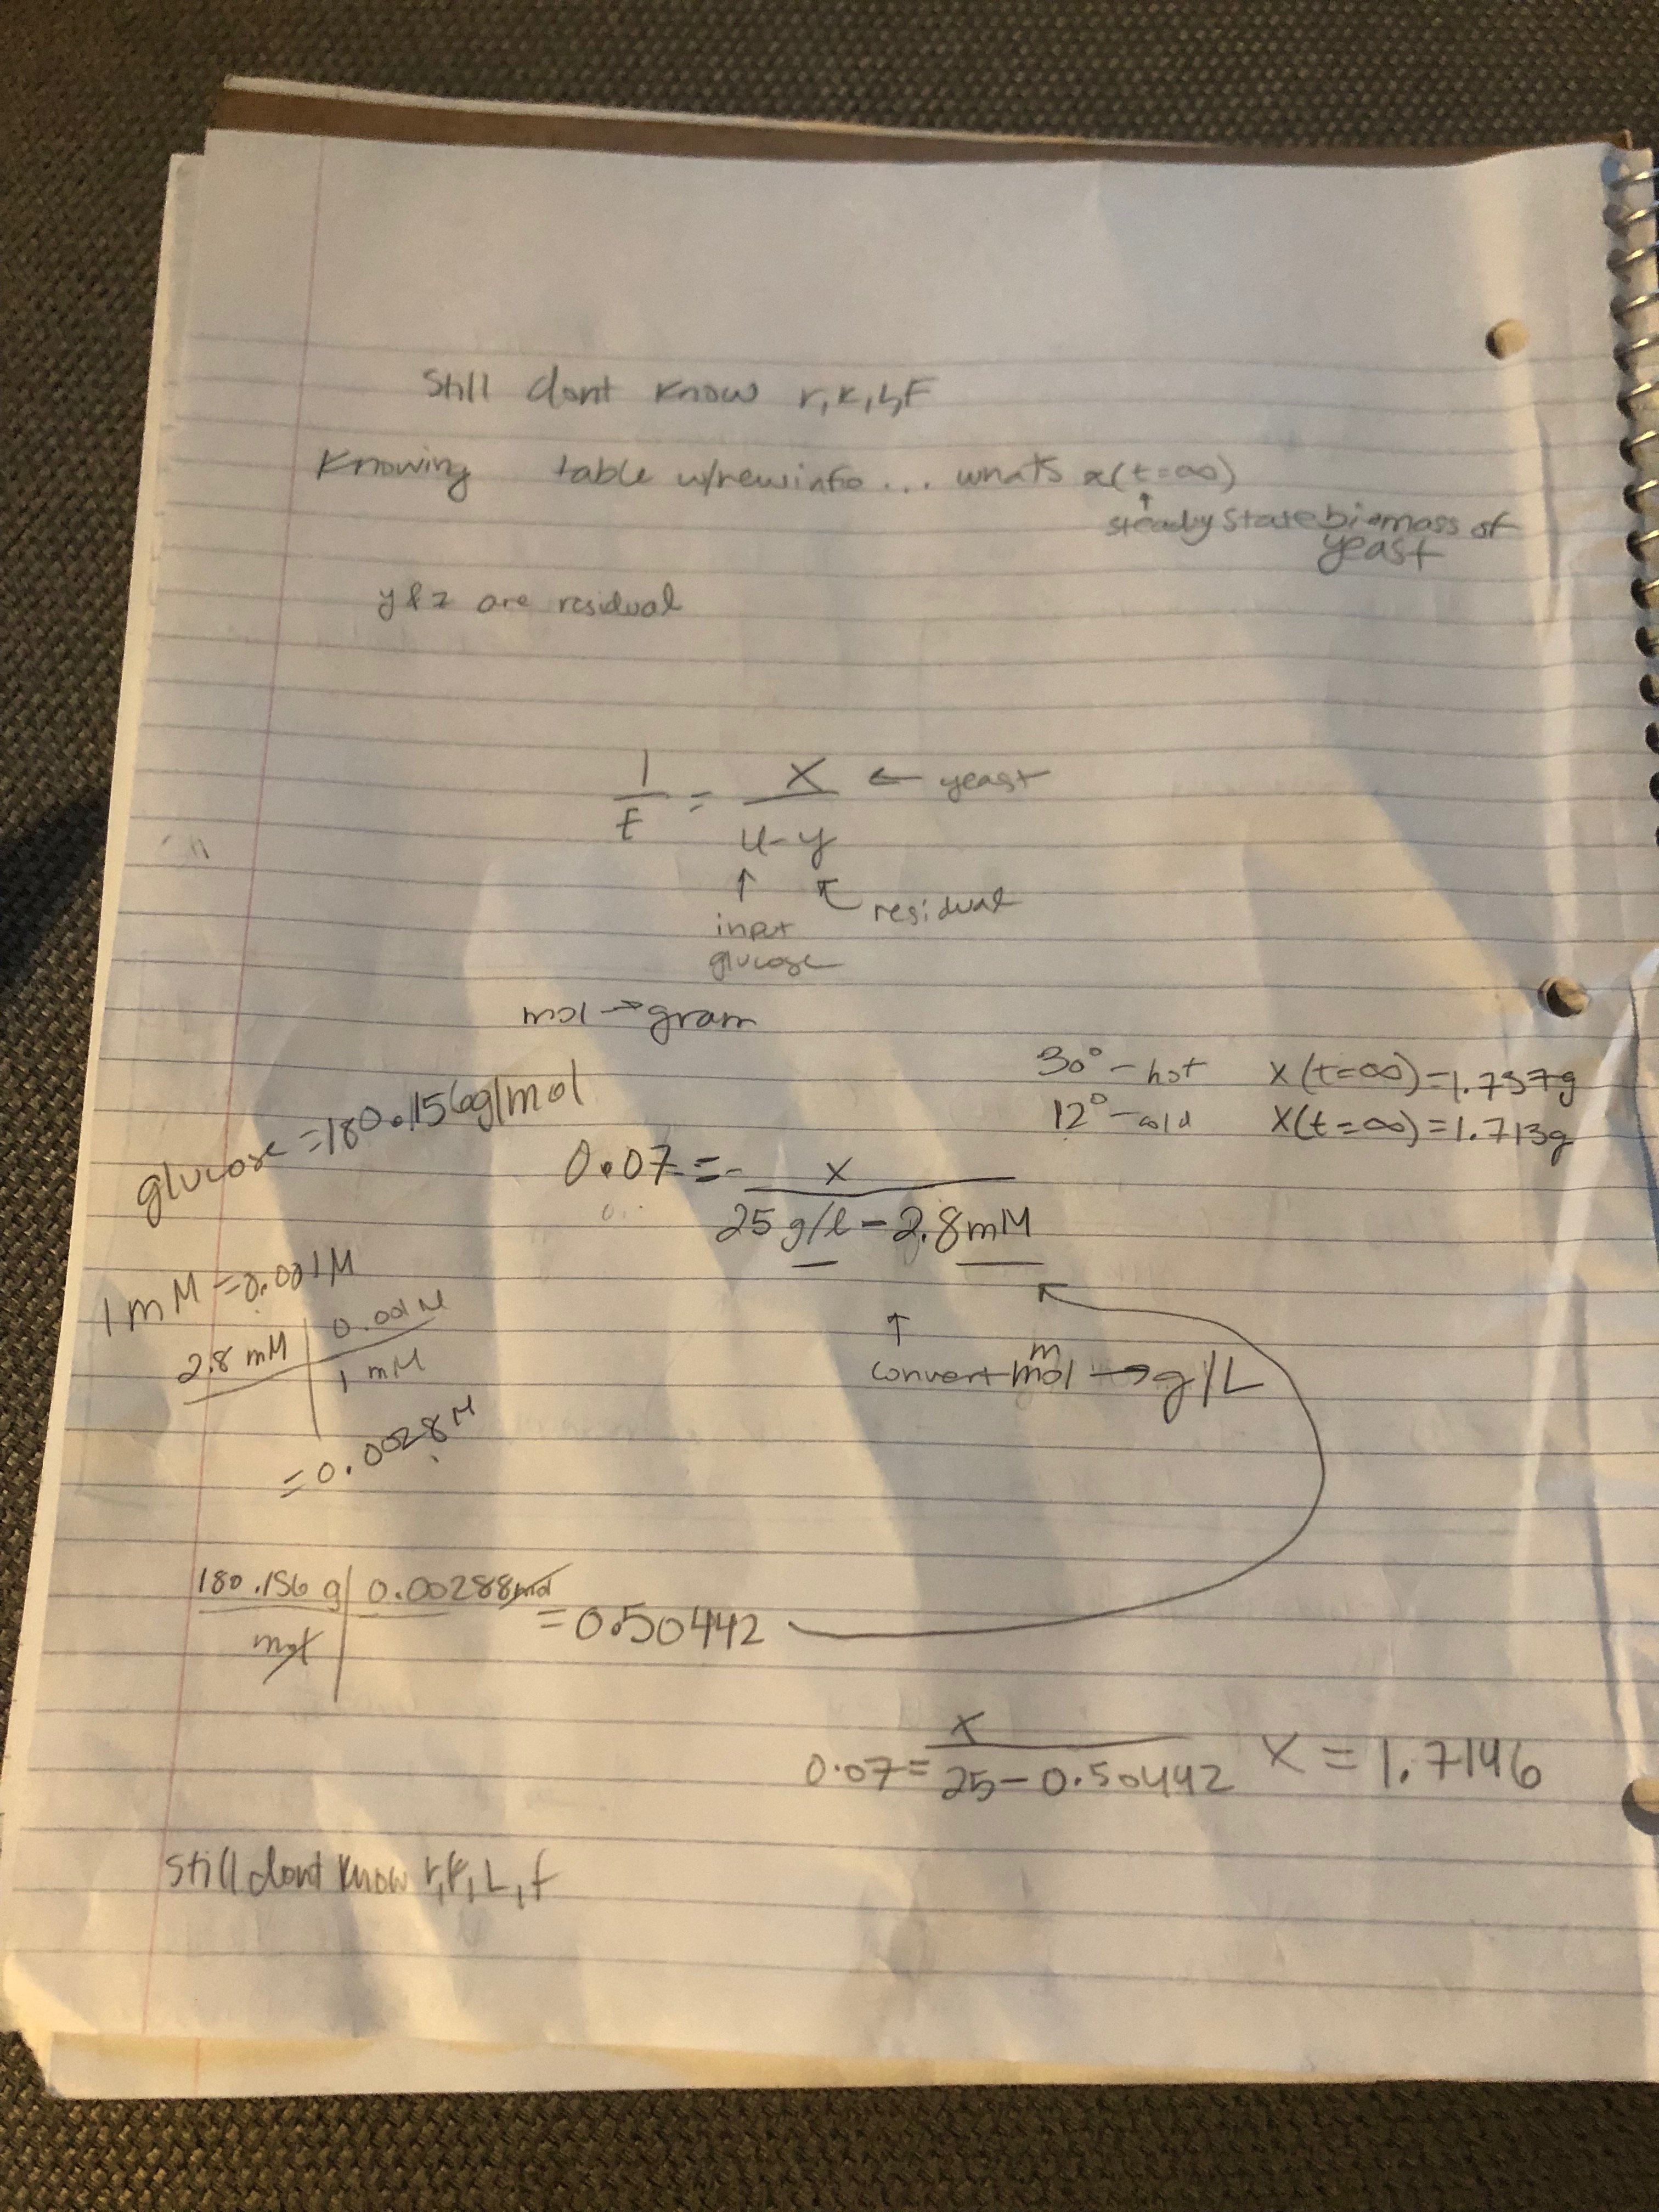 Still dont know r, k, L, F
Knowing table w/new info... whats x(t=∞)
↑
steady state biomass of
yeast
y & z are residual
1/F = X/(u-y) ← yeast
↑ ↖ residual
input
glucose
mol → gram
30° - hot X(t=∞)=1.737g
12° - cold X(t=∞)=1.713g
glucose = 180.156g/mol
0.07 = X/(25 g/l - 2.8mM)
1 mM = 0.001M
2.8 mM | 0.001M
| 1 mM
= 0.0028M
↑
m
convert mol → g/L
180.156 g | 0.00288 mol
mol |
= 0.50442
0.07 = X/(25 - 0.50442) X = 1.7146
Still dont know r, k, L, f